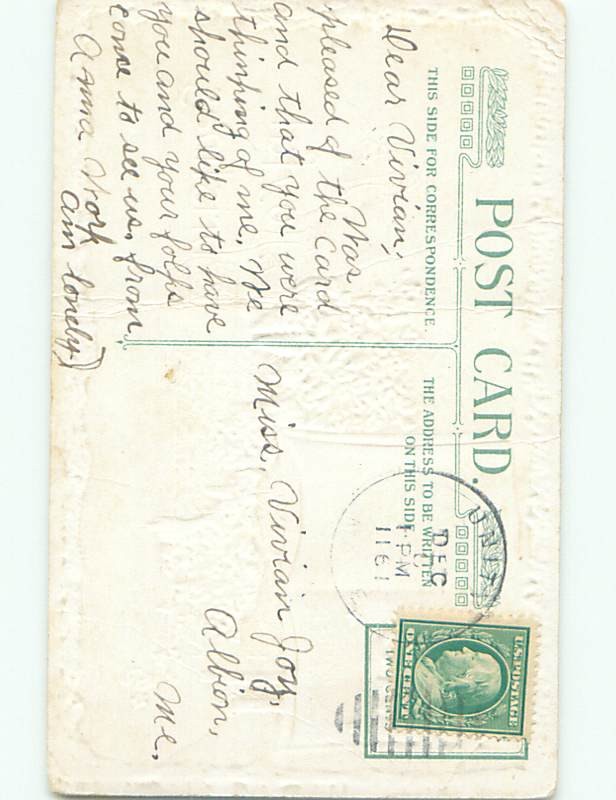 POST CARD.
THIS SIDE FOR CORRESPONDENCE.
THE ADDRESS TO BE WRITTEN
ON THIS SIDE
Dear Vivian;
Was
pleased of the card
and that you were
thinking of me. We
should like to have
you and your folks
come to see us. from
Anna York
am lonely)
Miss, Vivian Joy,
Albion,
Me,
UNIT
DEC
1 PM
1191
U.S. POSTAGE
ONE CENT
TWO CENTS